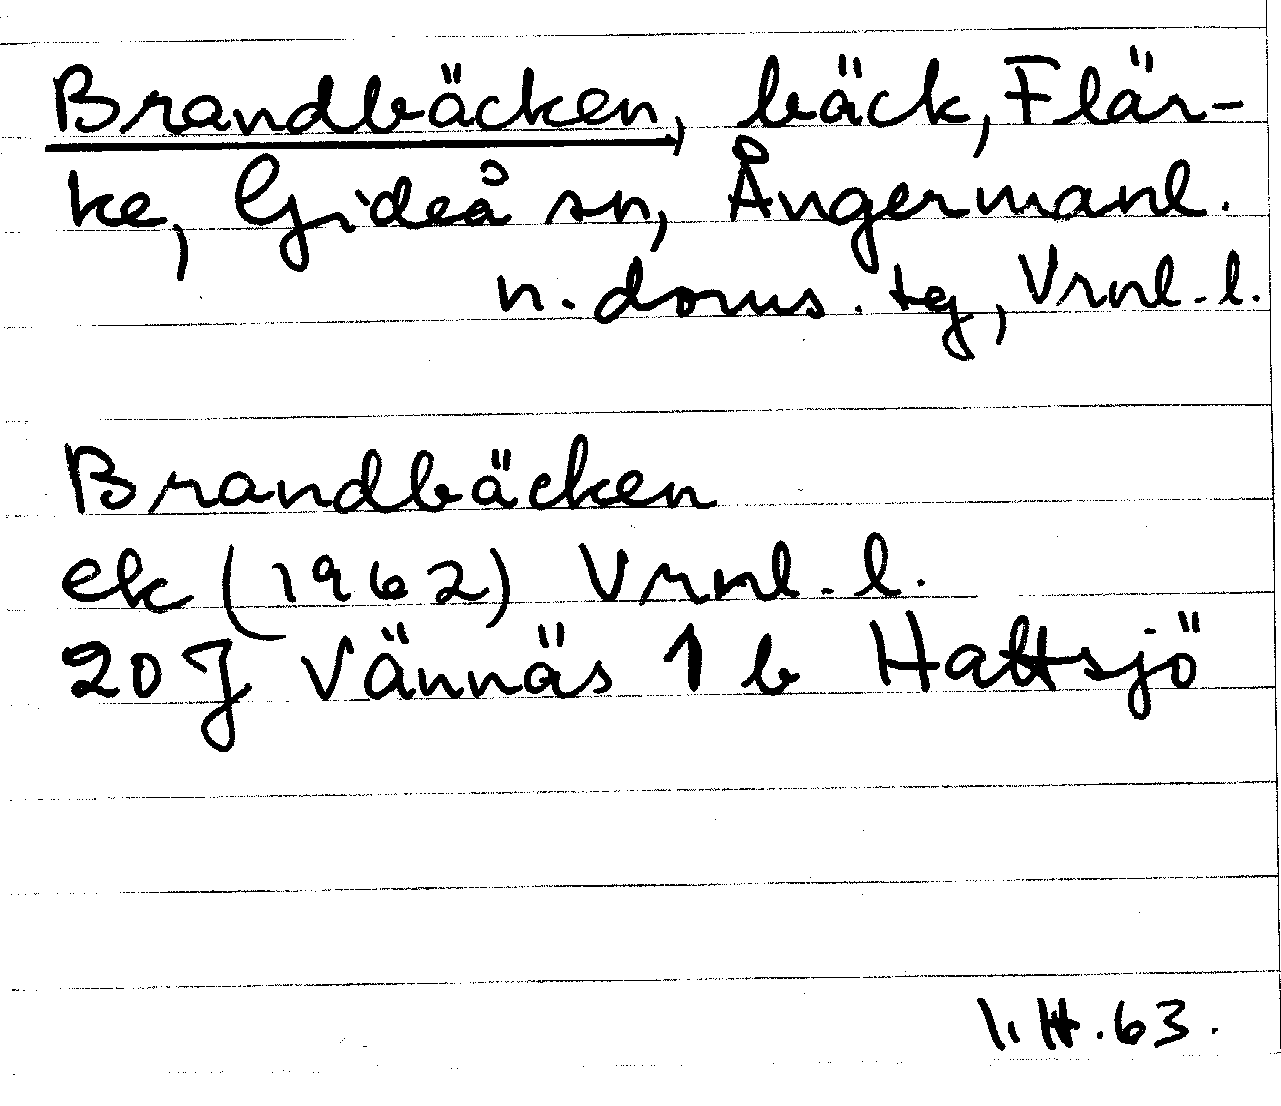 Brandbäcken, bäck, Flär-
ke, Gideå sn, Ångermanl.
n. doms. tg, Vrnl. l.
Brandbäcken
ek (1962) Vrnl. l.
20 J Vännäs 1 b Hattsjö
63.